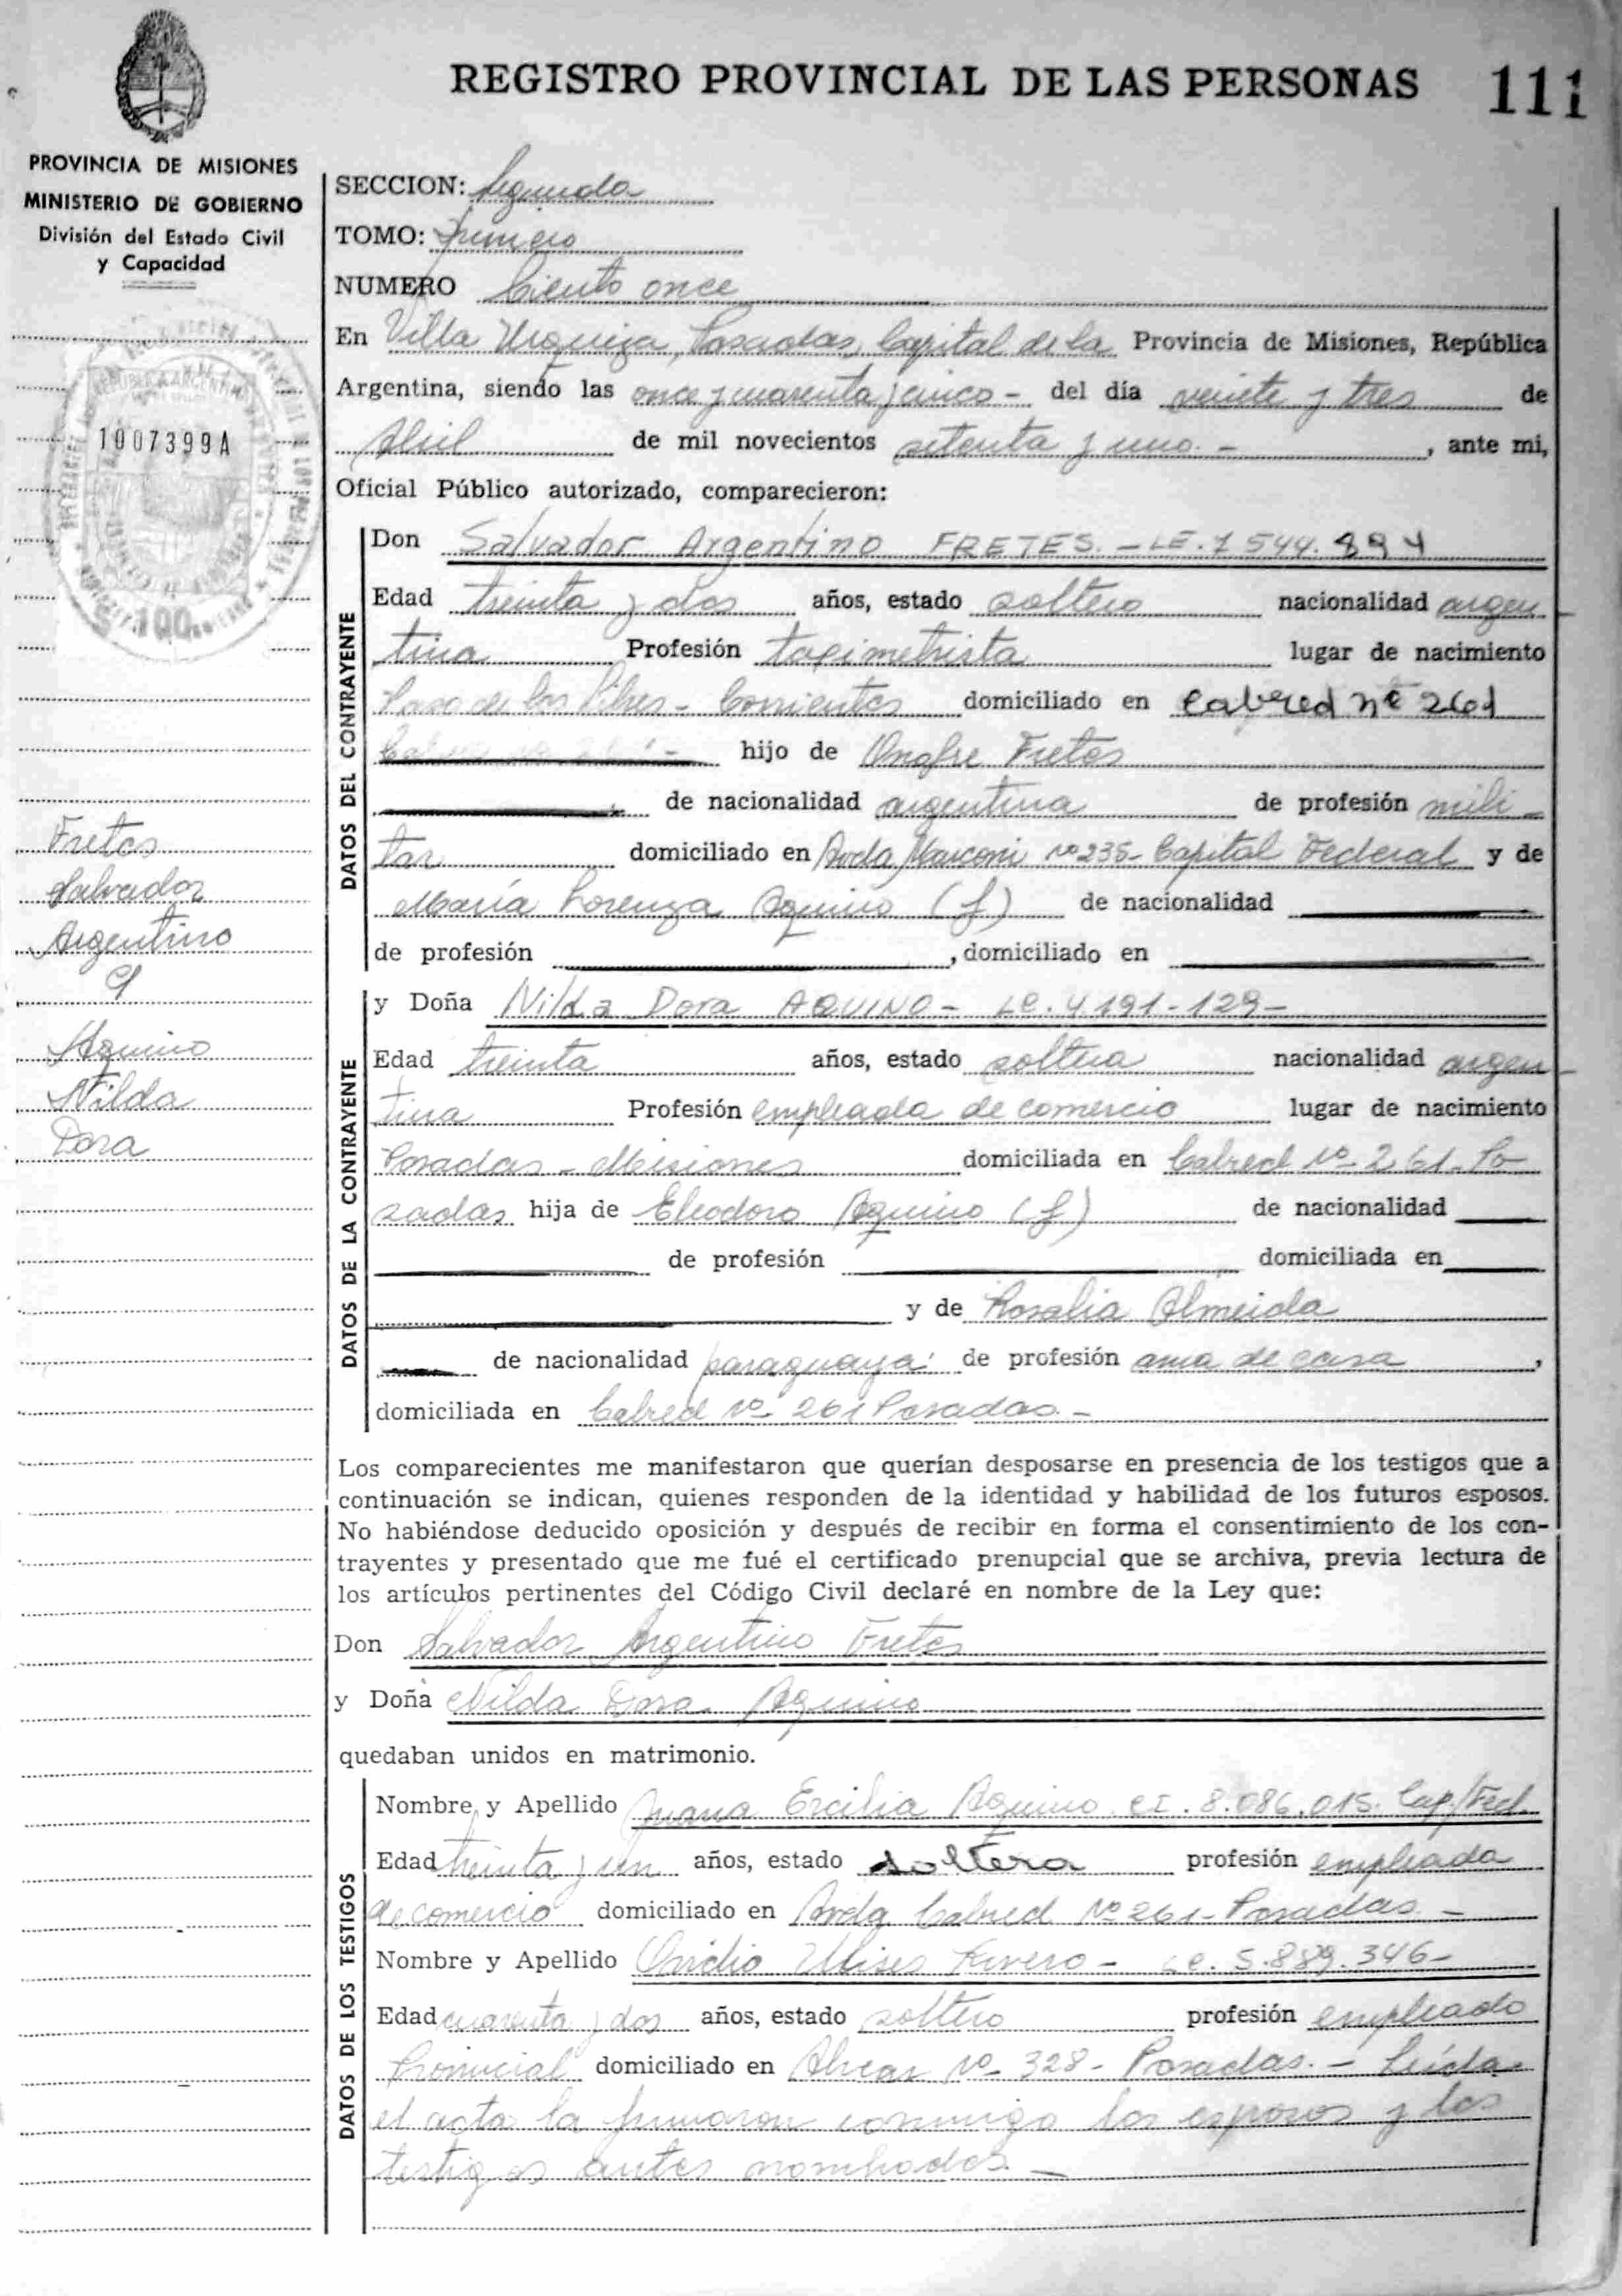 REGISTRO PROVINCIAL DE LAS PERSONAS 111
PROVINCIA DE MISIONES
MINISTERIO DE GOBIERNO
División del Estado Civil
y Capacidad
1007399A
REPUBLICA ARGENTINA
100
Fretes
Salvador
Argentino
y
Aquino
Nilda
Dora
SECCION: Segunda
TOMO: Primero
NUMERO Ciento once
En Villa Urquiza, Posadas, Capital de la Provincia de Misiones, República
Argentina, siendo las once y cuarenta y cinco - del día veinte y tres de
Abril de mil novecientos setenta y uno. - , ante mi,
Oficial Público autorizado, comparecieron:
DATOS DEL CONTRAYENTE
Don Salvador Argentino FRETES. - LE. 7 544. 894
Edad treinta y dos años, estado soltero nacionalidad argen
tina Profesión taximetrista lugar de nacimiento
Paso de los Libres - Corrientes domiciliado en Cabred nº 261
hijo de Onofre Fretes
de nacionalidad argentina de profesión mili
tar domiciliado en Avda Marconi nº 235 - Capital Federal y de
María Lorenza Aquino (f) de nacionalidad
de profesión , domiciliado en
DATOS DE LA CONTRAYENTE
y Doña Nilda Dora AQUINO - LC. 4.191-129 -
Edad treinta años, estado soltera nacionalidad argen
tina Profesión empleada de comercio lugar de nacimiento
Posadas - Misiones domiciliada en Cabred Nº 261 - Po
sadas hija de Eleodoro Aquino (f) de nacionalidad
de profesión domiciliada en
y de Rosalia Almeida
de nacionalidad paraguaya de profesión ama de casa ,
domiciliada en Cabred Nº 261 Posadas. -
Los comparecientes me manifestaron que querían desposarse en presencia de los testigos que a
continuación se indican, quienes responden de la identidad y habilidad de los futuros esposos.
No habiéndose deducido oposición y después de recibir en forma el consentimiento de los con-
trayentes y presentado que me fué el certificado prenupcial que se archiva, previa lectura de
los artículos pertinentes del Código Civil declaré en nombre de la Ley que:
Don Salvador Argentino Fretes
y Doña Nilda Dora Aquino
quedaban unidos en matrimonio.
DATOS DE LOS TESTIGOS
Nombre y Apellido Juana Ercilia Aquino CI. 8.086.015. Cap/Fed.
Edad treinta y un años, estado soltera profesión empleada
de comercio domiciliado en Avda Cabred Nº 261 - Posadas. -
Nombre y Apellido Ovidio Ulises Rivero - LE. 5.889.346 -
Edad cuarenta y dos años, estado soltero profesión empleado
Provincial domiciliado en Nº 328 - Posadas. - Leída
el acta la firmaron conmigo los esposos y los
testigos antes nombrados. -